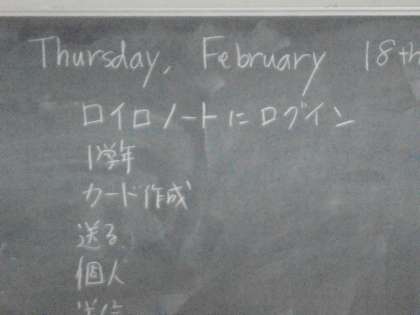 Thursday, February 18th
ロイロノートにログイン
1学年
カード作成
送る
個人